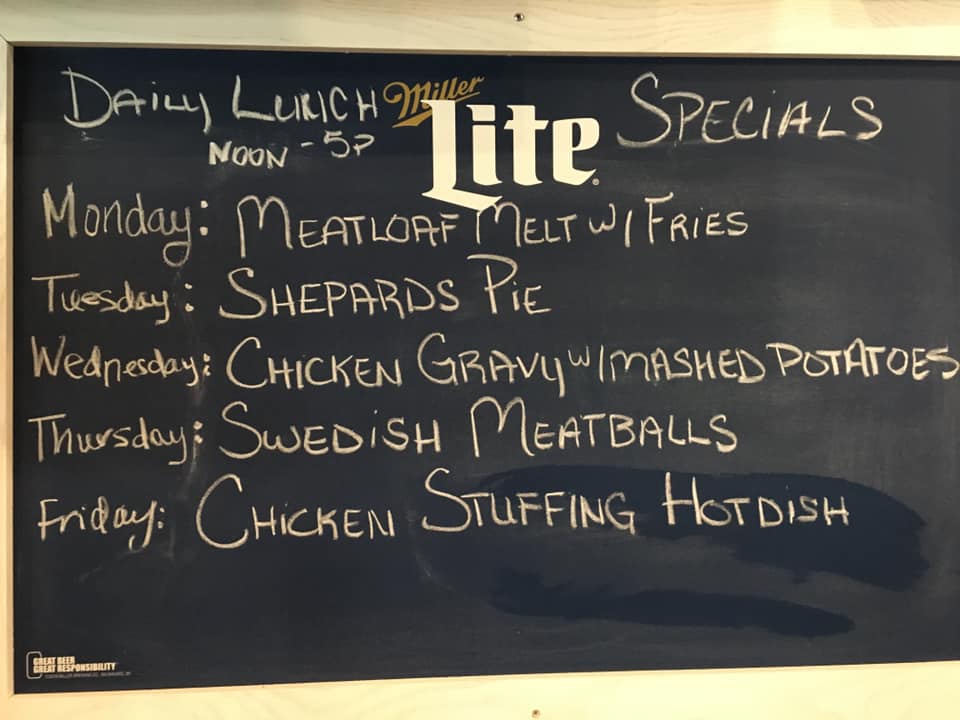 DAiLY LUNCH Miller Lite SPECiALS
NOON - 5P
Monday: MEATLOAF MELT W/ FRIES
Tuesday: SHEPARDS PIE
Wednesday: CHICKEN GRAVY W/ MASHED POTATOES
Thursday: SWEDiSH MEATBALLS
Friday: CHiCKEN STUFFING HOTDISH
GREAT BEER
GREAT RESPONSIBILITY